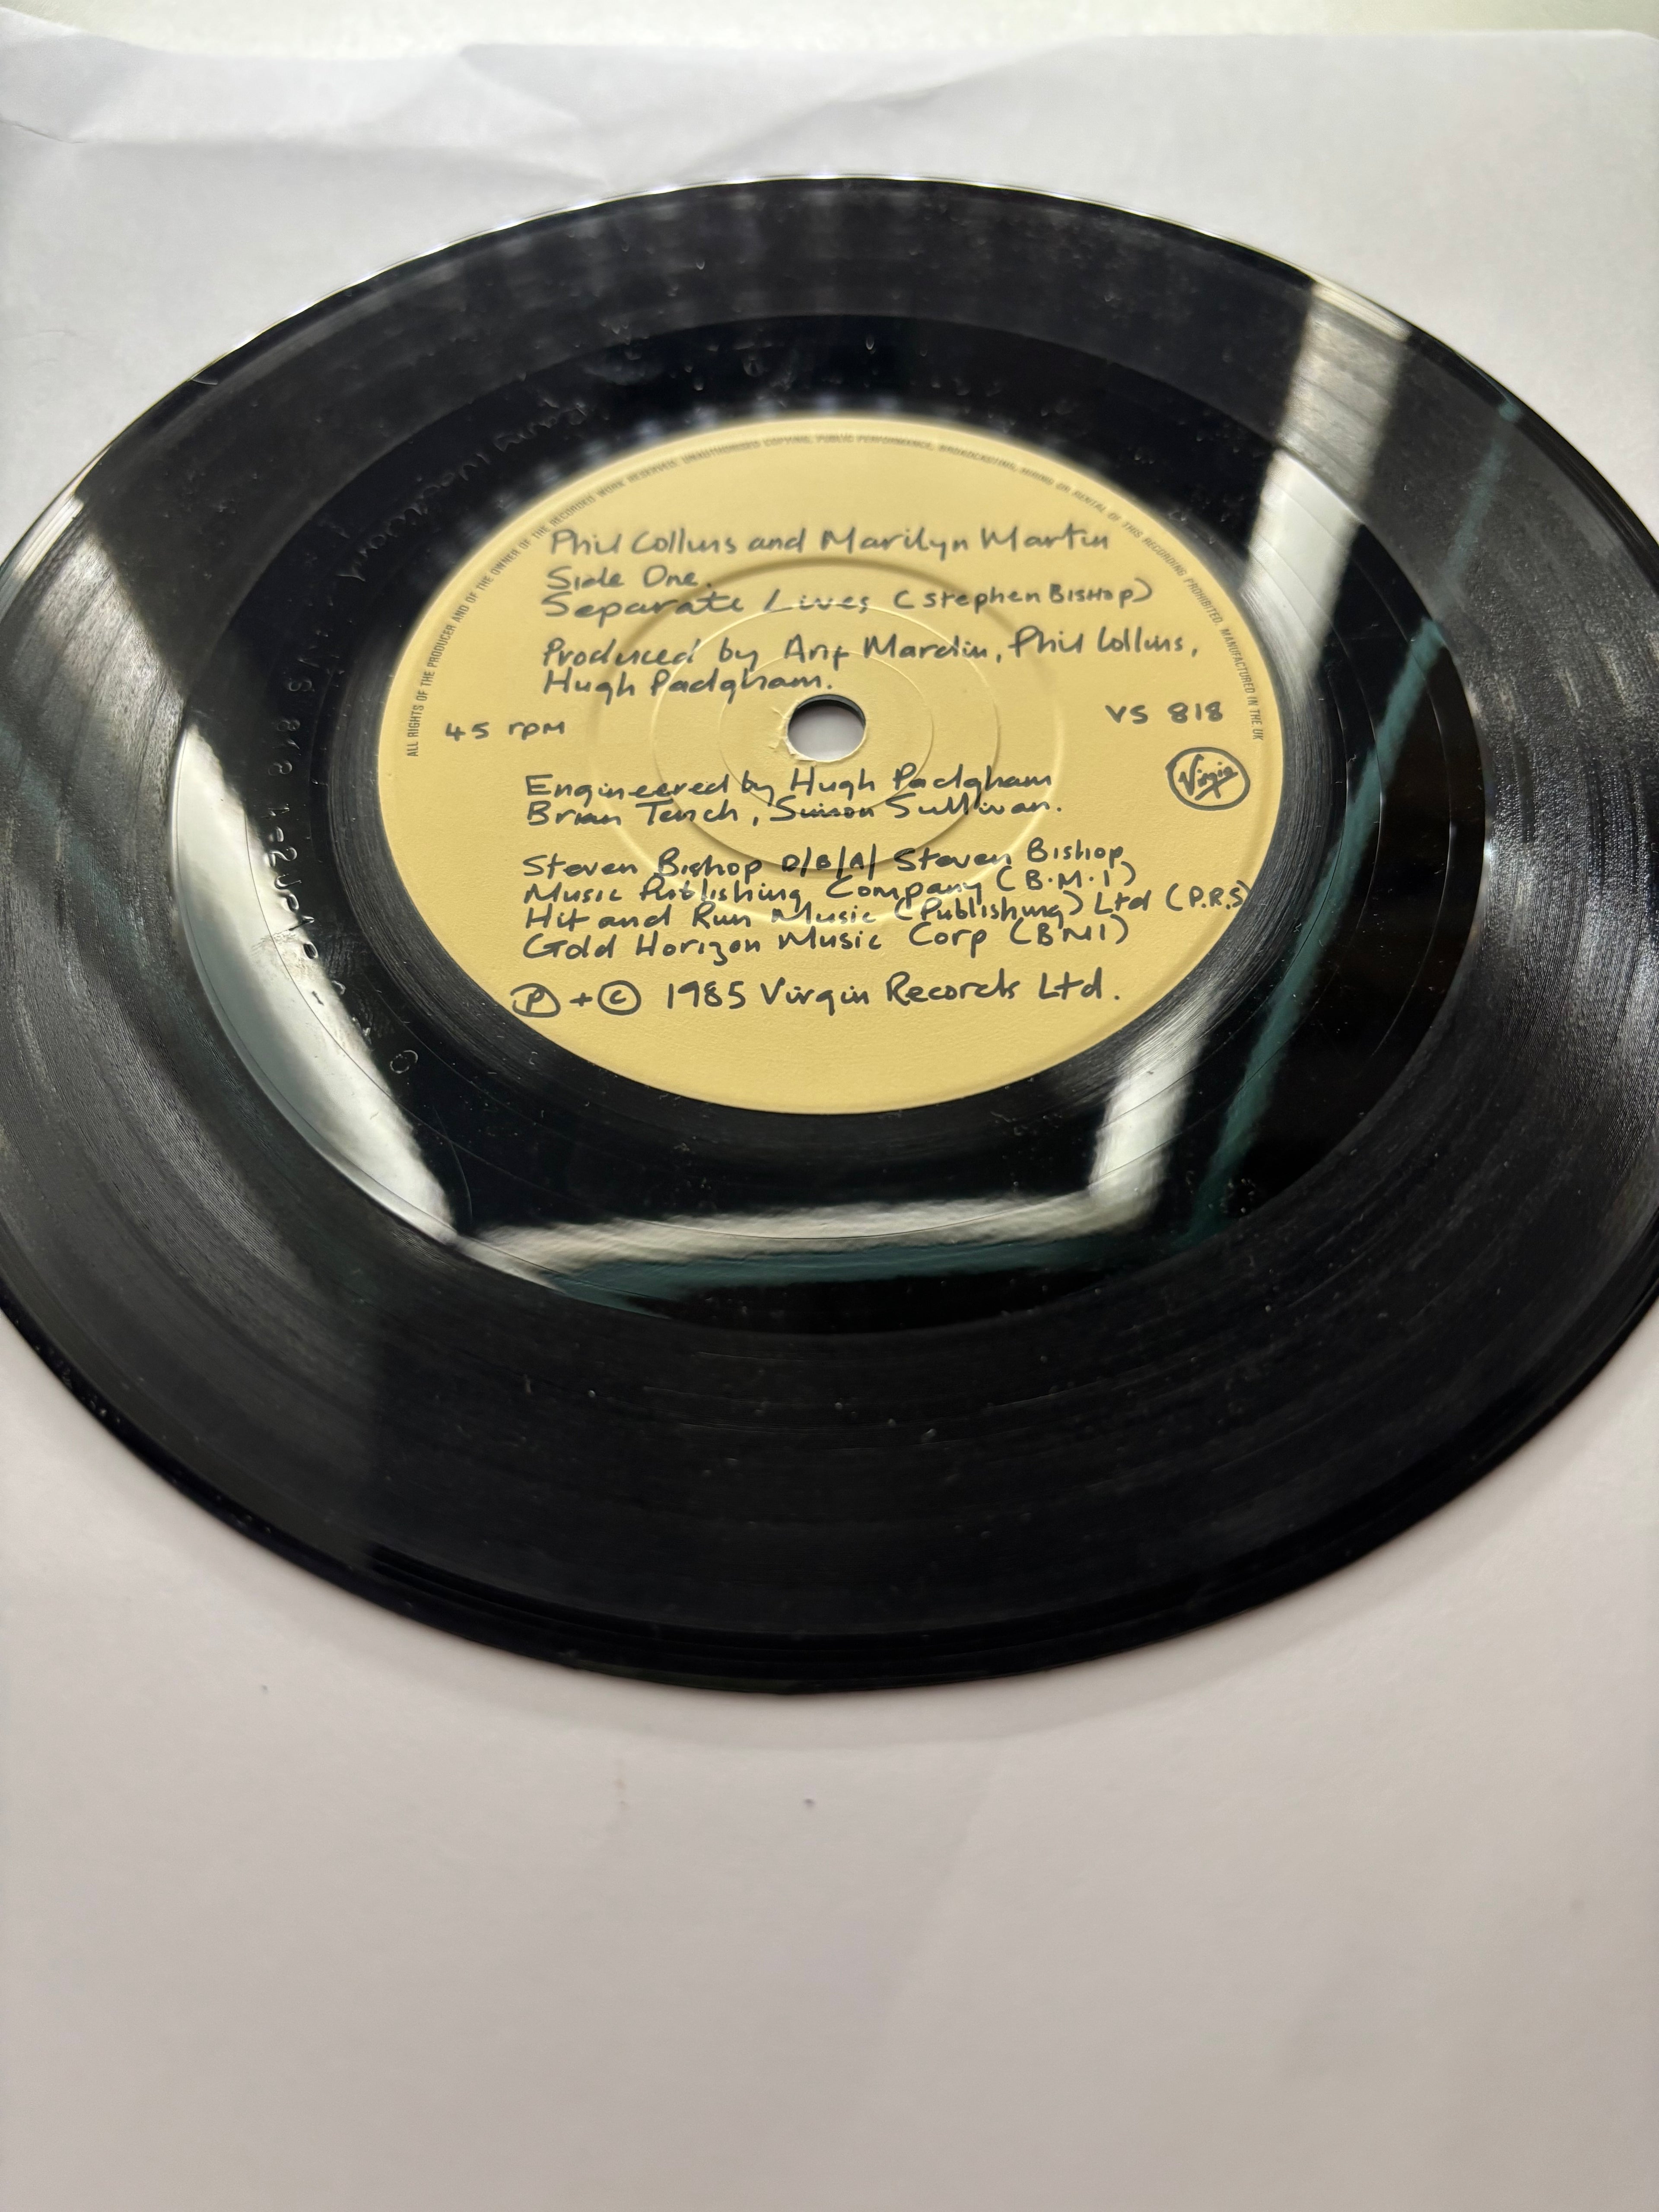 ALL RIGHTS OF THE PRODUCER AND OF THE OWNER OF THE RECORDED WORK RESERVED. UNAUTHORISED COPYING, PUBLIC PERFORMANCE, BROADCASTING, HIRING OR RENTAL OF THIS RECORDING PROHIBITED. MANUFACTURED IN THE UK
Phil Collins and Marilyn Martin
Side One.
Separate Lives (Stephen BisHop)
Produced by Arif Mardin, Phil Collins,
Hugh Padgham.
45 rpm
VS 818
Virgin
Engineered by Hugh Padgham
Brian Tench, Simon Sullivan.
Steven Bishop D/B/A/ Steven Bishop
Music Publishing Company (B.M.I)
Hit and Run Music (Publishing) Ltd (P.R.S)
Gold Horizon Music Corp (BMI)
Ⓟ + © 1985 Virgin Records Ltd.